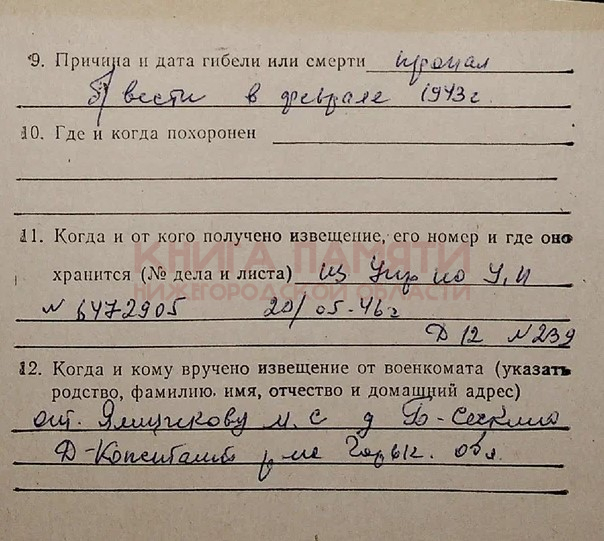 9. Причина и дата гибели или смерти пропал
б/вести в феврале 1943 г.
10. Где и когда похоронен
11. Когда и от кого получено извещение, его номер и где оно
КНИГА ПАМЯТИ
хранится (№ дела и листа) из Упр по У,П
НИЖЕГОРОДСКОЙ ОБЛАСТИ
N 6472905 20/05-46 г
Д 12 N 239
12. Когда и кому вручено извещение от военкомата (указать
родство, фамилию, имя, отчество и домашний адрес)
от. Ямщикову М. С д Б-
Д-Константи р-на Горьк. обл.